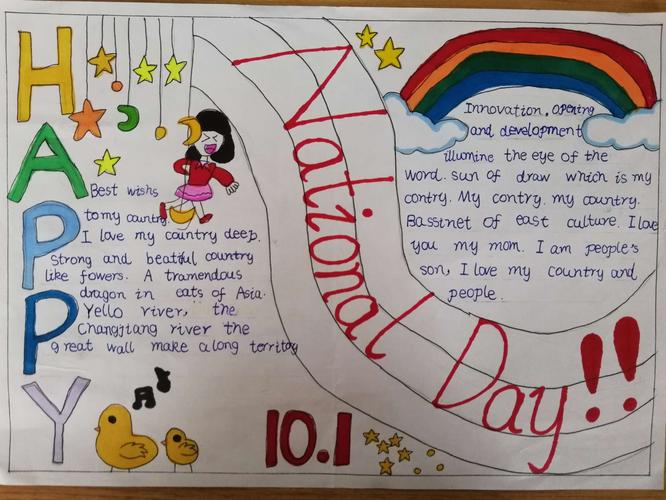 HAPPY
National Day!!
Best wishs
to my country.
I love my country deep.
strong and beatiful country
like fowers. A tramendous
dragon in eats of Asia.
Yello river, the
Changjiang river the
great wall make along territoy
Innovation, opening
and development
illumine the eye of the
word. sun of draw which is my
contry. My contry. my country.
Bassinet of east culture. I love
you my mom. I am people's
son, I love my country and
people.
10.1